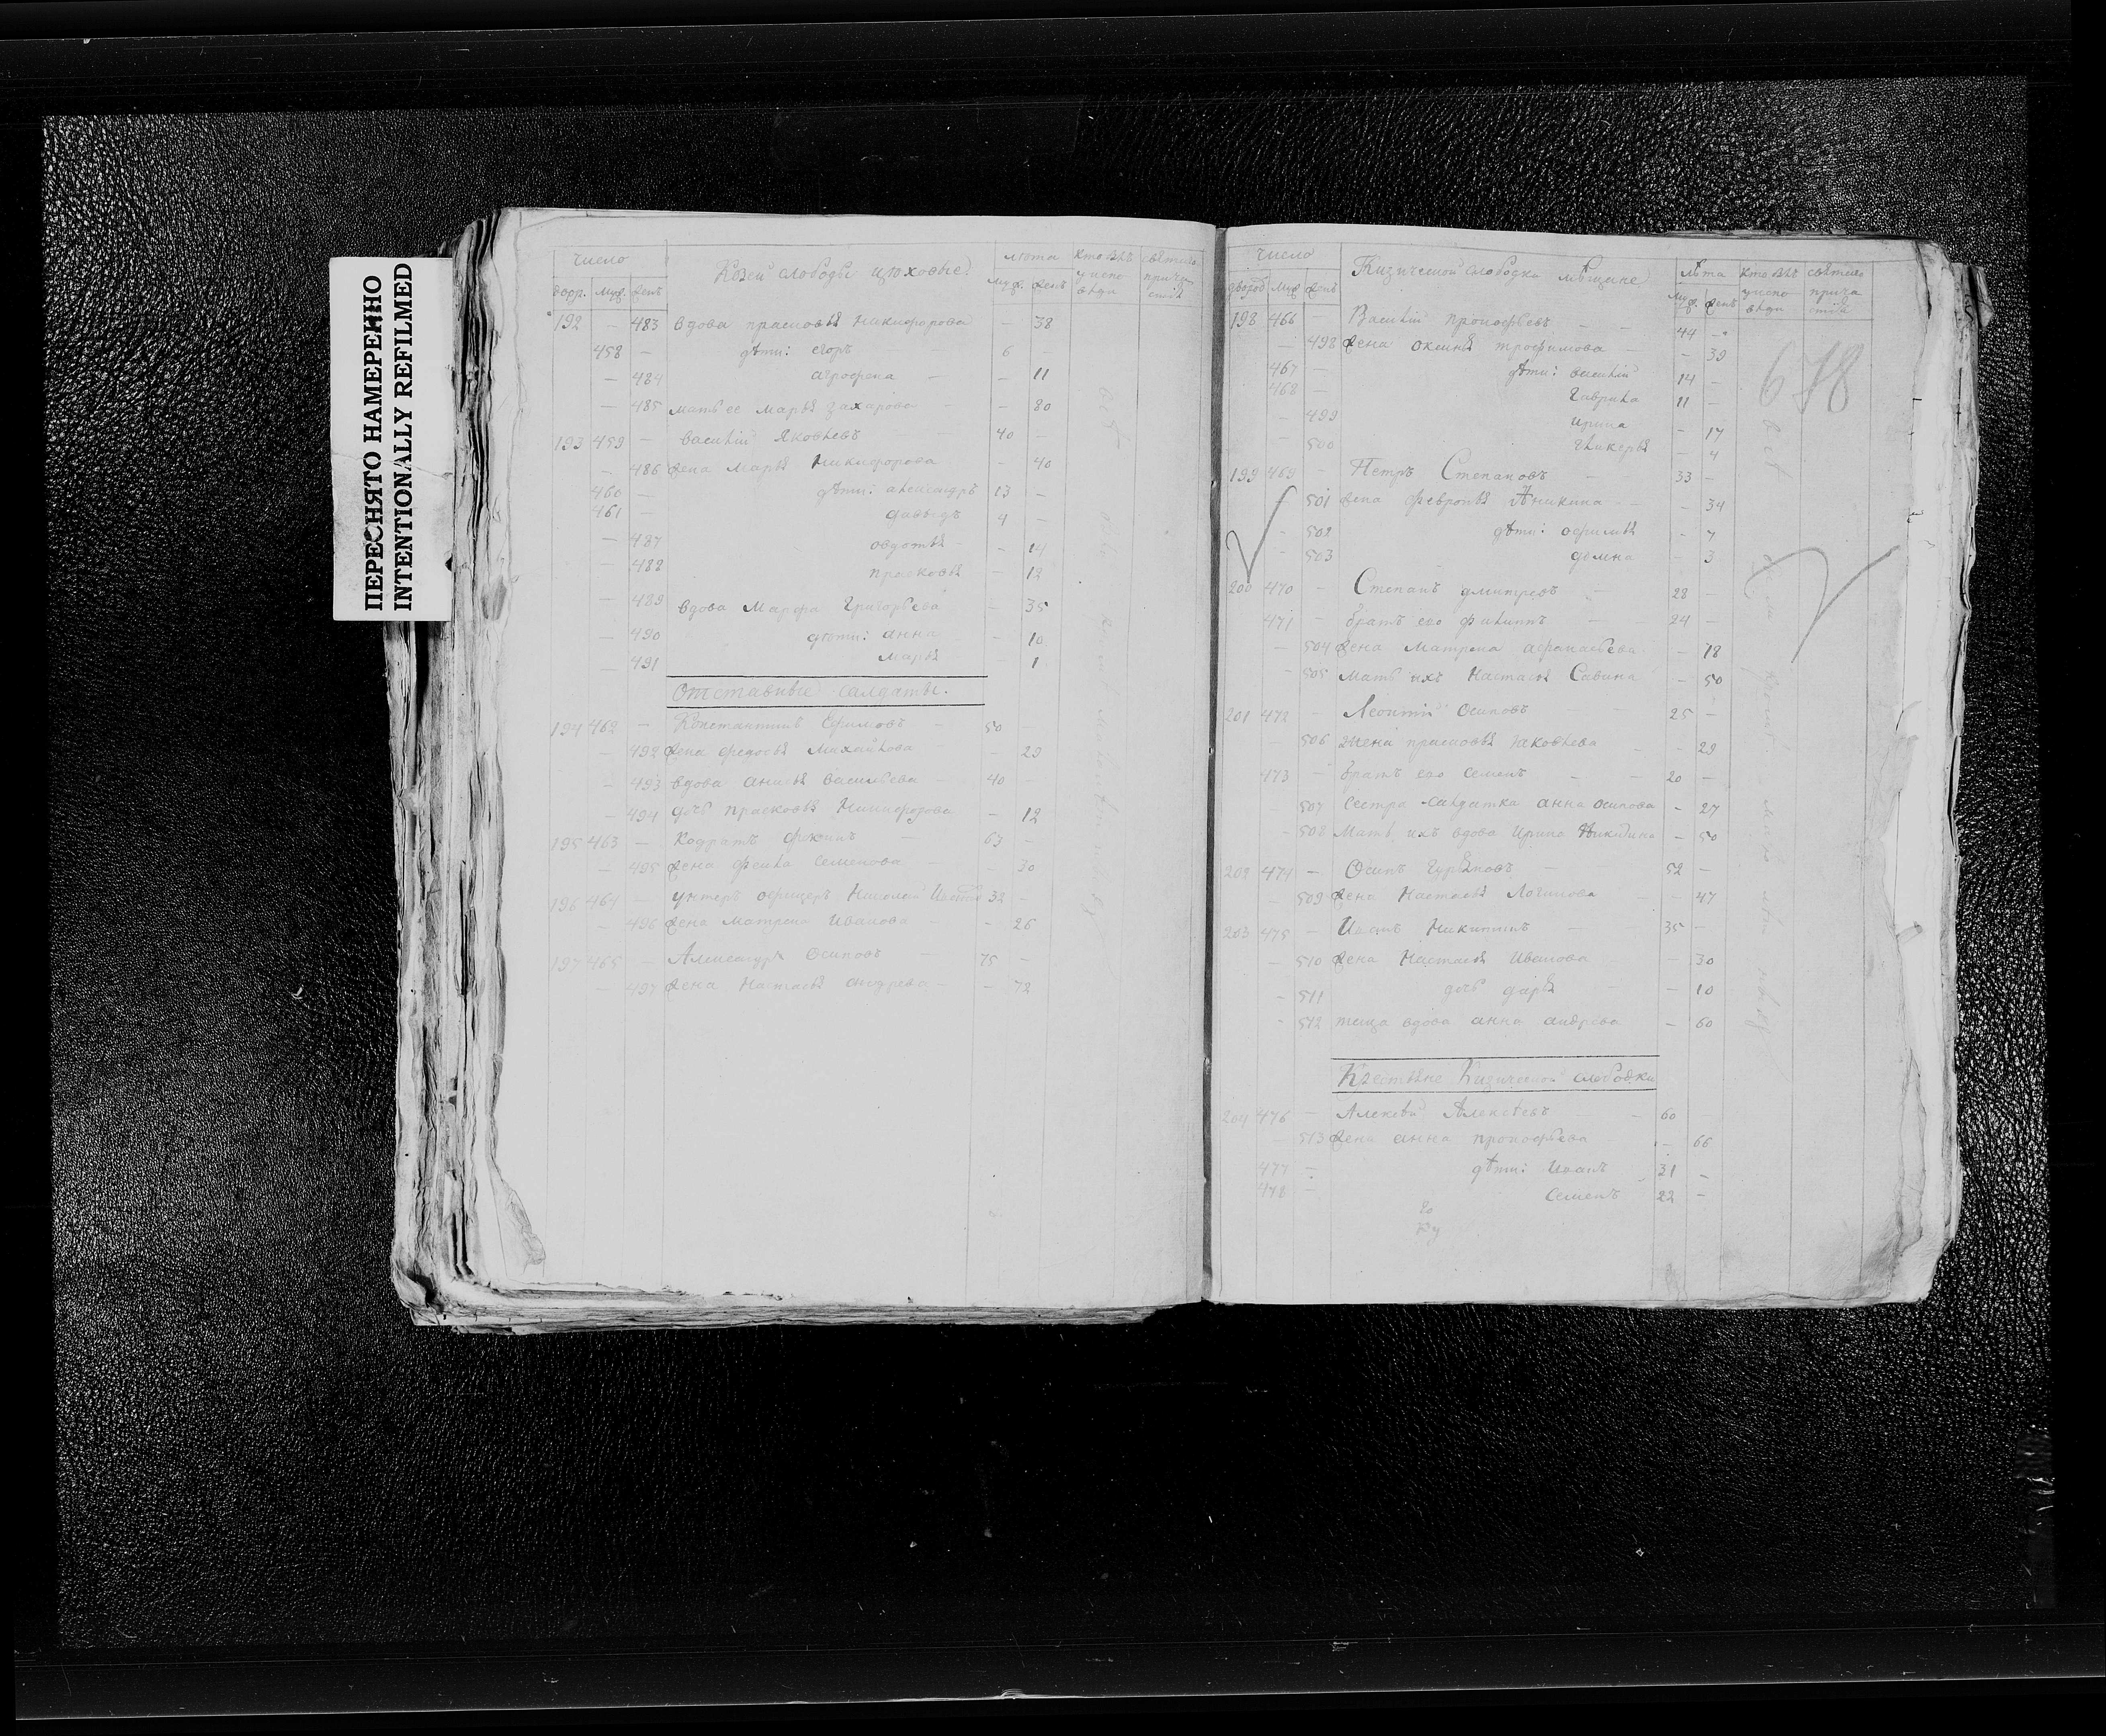 ПЕРЕСНЯТО НАМЕРЕННО
INTENTIONALLY REFILMED
число Козей слободы цюховые лѣта кто былъ у исповѣди святаго причастія
двор. муж. женъ муж. женъ
192 — 483 вдова прасковья Никифорова — 38
458 — дѣти: егоръ 6 —
— 484 агрофена — — 11
— 485 мать ее марья захарова — — 80
193 459 — василій Яковлевъ 40 —
— 486 жена марья Никифорова — 40
460 — дѣти: александръ 13 —
461 — давыдъ 4 —
— 487 овдотья — — 14
— 488 прасковья — 12
— 489 вдова Марфа Григорьева — 35
— 490 дѣти: анна — 10
— 491 марья 1
Отставные салдаты.
194 462 — Константинъ Ефимовъ — 50 —
— 492 жена федосья Михайлова — — 29
— 493 вдова анисья васильева — 40 —
— 494 дочь прасковья Никифорова — 12
195 463 — Кодратъ — 63 —
— 495 жена Семенова — 30
196 464 — унтеръ офицеръ Николай 32 —
— 496 жена матрена Иванова — — 26
197 465 — Александръ Осиповъ — 75 —
— 497 жена Настасья андреева — — 72
число Кизической слободки мѣщане лѣта кто былъ у исповѣди святаго причастія
дворов муж женъ муж. женъ
678
198 466 — Василій прокофьевъ — — 44 —
— 498 жена оксинья трофимова — — 39
467 — дѣти: василій 14 —
468 — Гаврила 11 —
— 499 ирина — 17
500 гликерья — 4
199 469 — Петръ Степановъ — — 33 —
501 жена февронья Аникина — — 34
— 502 дѣти: офимья — 7
— 503 домна — 3
200 470 — Степанъ дмитревъ — 28 —
471 — братъ его филиппъ — — 24 —
— 504 жена матрена афанасьева — 18
— 505 мать ихъ Настасья Савина — 50
201 472 — Леонтій осиповъ — — 25 —
— 506 жена прасковья Яковлева — — 29
473 — братъ его семенъ — — 20 —
— 507 сестра салдатка анна осипова — 27
— 508 Мать ихъ вдова ирина — 50
202 474 — Осипъ Гурьяновъ — 52 —
— 509 жена Настасья Логинова — — 47
203 475 — Иванъ Никитинъ — — 35 —
— 510 жена Настасья Иванова — — 30
— 511 дочь дарья — — 10
— 512 теща вдова анна андрева — 60
Крестьяне Кизической слободки
204 476 — Алексѣй Алексѣевъ — — 60
— 513 жена анна прокофьева — 66
477 — дѣти: Иванъ 31 —
478 — семенъ 22 —